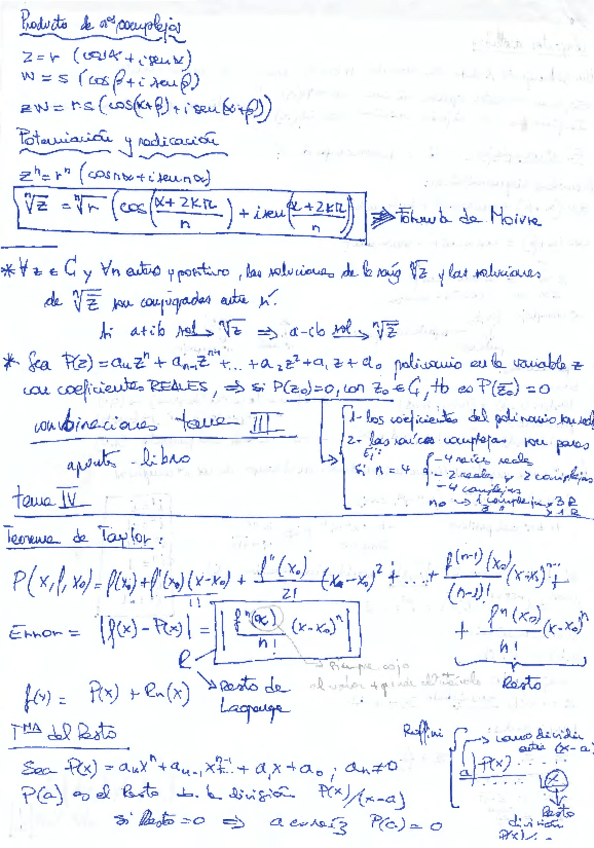 Producto de nºs complejos
z = r (cosα + i senα)
w = s (cosβ + i senβ)
zw = rs (cos(α+β) + i sen(α+β))
Potenciación y radicación
zⁿ = rⁿ (cos nα + i sen nα)
ⁿ√z = ⁿ√r (cos((α+2kπ)/n) + i sen((α+2kπ)/n)) ⇒ Fórmula de Moivre
* ∀z ∈ ℂ y ∀n entero y positivo, las soluciones de la raíz ⁿ√z y las soluciones
de ⁿ√z̄ son conjugadas entre sí.
Si a+ib sol → ⁿ√z ⇒ a-ib sol → ⁿ√z̄
* Sea P(z) = aₙzⁿ + aₙ₋₁zⁿ⁻¹ + ... + a₂z² + a₁z + a₀ polinomio en la variable z
con coeficientes REALES, ⇒ si P(z₀)=0, con z₀ ∈ ℂ, tb es P(z̄₀) = 0
combinaciones tema III
apuntes - libro
1- los coeficientes del polinomio son
2- las raíces complejas son pares
Ej:
si n = 4
- 4 raíces reales
- 2 reales y 2 complejas
- 4 complejas
no → 1 compleja y 3 R
3 " 1 R
tema IV
Teorema de Taylor:
P(x, f, x₀) = f(x₀) + f'(x₀)(x-x₀)/1! + f''(x₀)/2! (x-x₀)² + ... + f⁽ⁿ⁻¹⁾(x₀)/(n-1)! (x-x₀)ⁿ⁻¹ +
+ fⁿ(x₀)/n! (x-x₀)ⁿ
Resto
Error = |f(x) - P(x)| = |fⁿ(α)/n! (x-x₀)ⁿ|
Siempre cojo
el valor + grande del
R
Resto de
Lagrange
f(x) = P(x) + Rn(x)
Tᴹᴬ del Resto
Sea P(x) = aₙxⁿ + aₙ₋₁xⁿ⁻¹ + ... + a₁x + a₀ ; aₙ≠0
P(a) es el Resto de la división P(x)/(x-a)
Si Resto = 0 ⇒ a es raíz P(a) = 0
Ruffini
como dividir
entre (x-a)
a| P(x)
Resto
división
P(x)/